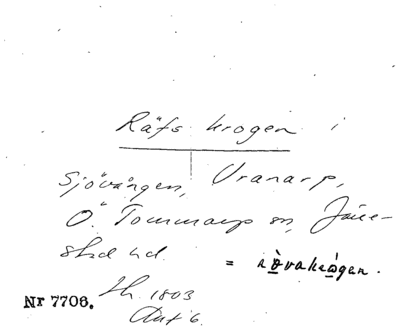 Räfs krogen i
Sjövången, Vranarp,
Ö. Tommarp sn, Järre-
stad hd. = rövakrågen.
Nr 7706. Lh. 1803
Akt 6.